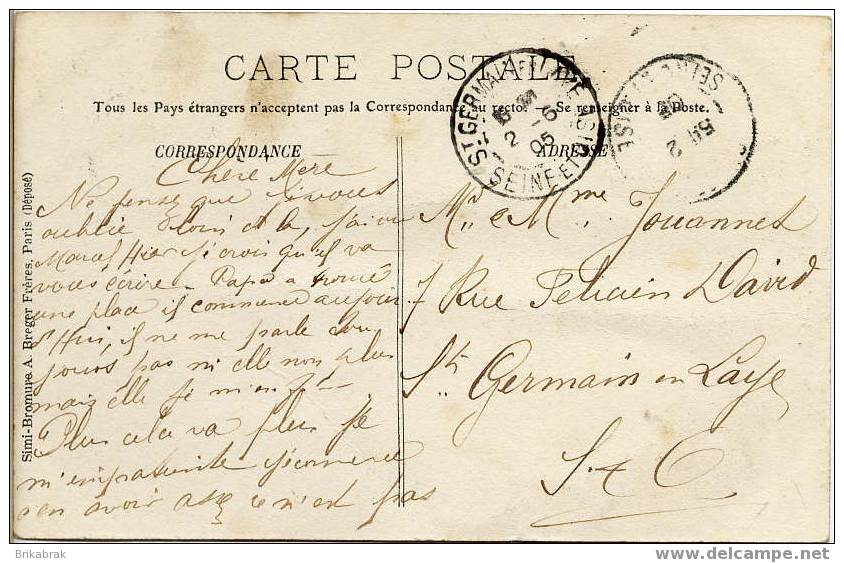 CARTE POSTALE
Tous les Pays étrangers n'acceptent pas la Correspondance au recto. - Se renseigner à la Poste.
CORRESPONDANCE
ADRESSE
ST GERMAIN-EN-LAYE
2 -6
05
SEINE-ET-OISE
Chère Mere
Ne pensez que je vous
oublie loin et la, j'ai vu
Marcel Hier je crois qu'il va
vous écrire - Papa a trouvé
une place il commence aujour
d'Hui, il ne me parle tou
jours pas ni elle non plus
mais elle je m'en f---
Plus cela va plus je
m'empatiente je commence
a en avoir assez ce n'est pas
Mr. & Mme. Jouannet
7 Rue Felicien David
St. Germain en Laye
S. & O
Simi-Bromure A. Breger Frères, Paris (Déposé)
Brikabrak
delcampe.net